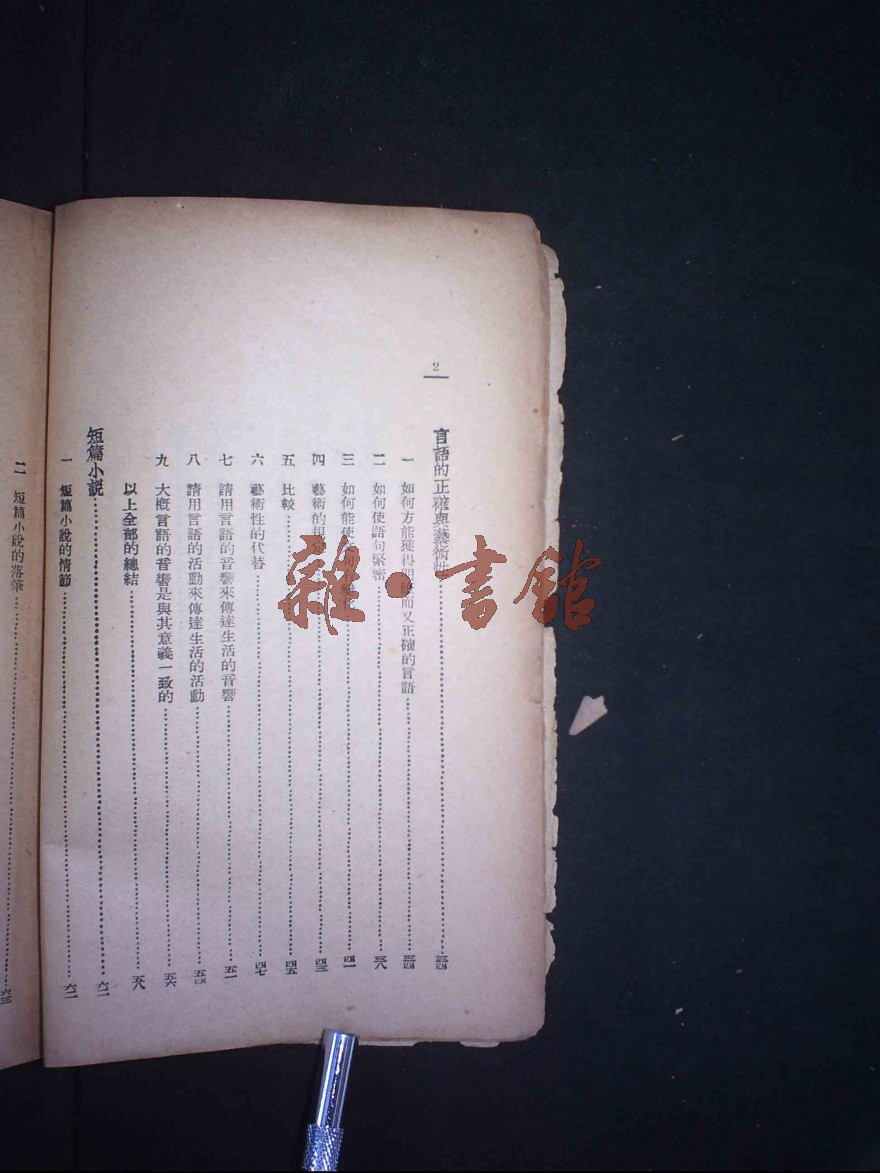 2
言語的正確與藝術性……三四
一 如何方能獲得明 而又正確的言語……三四
二 如何使語句緊密……三八
三 如何能使 ……四一
四 藝術的 ……四三
五 比較……四五
六 藝術性的代替……四七
七 請用言語的音響來傳達生活的音響……五一
八 請用言語的活動來傳達生活的活動……五四
九 大概言語的音響是與其意義一致的……五六
以上全部的總結……五八
短篇小説……六一
一 短篇小說的情節……六二
二 短篇小說的落筆……六三
雜·書館